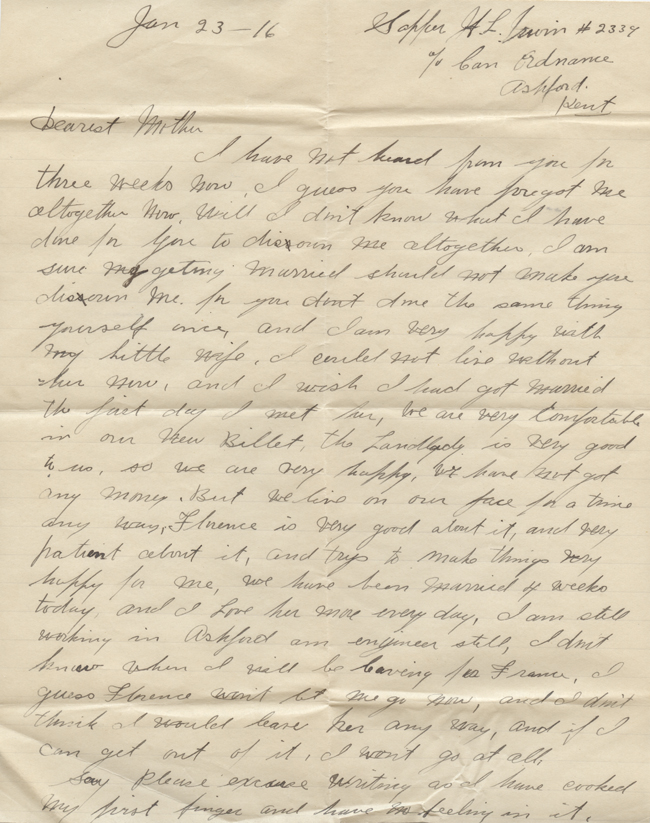 Jan 23-16
Sapper H.L. Irwin # 2339
c/o Can Ordnance
Ashford.
Kent
Dearest Mother
I have not heard from you for
three weeks now, I guess you have forgot me
altogether now. Will I don't know what I have
done for you to disown me altogether, I am
sure my geting married should not make you
disown me. for you don't done the same thing
yourself once, and I am very happy with
my little wife, I could not live without
her now, and I wish I had got married
the first day I met her, We are very Comfortable
in our new Billet, the Landlady is very good
to us, so we are very happy, We have not got
any money. But we live on our face for a time
any way, Florence is very good about it, and very
patient about it, and trys to make things very
happy for me, we have been married 4 weeks
today, and I Love her more every day, I am still
working in Ashford am engineer still, I dont
know when I will be leaving for France, I
guess Florence won't let me go now, and I don't
think I would leave her any way, and if I
can get out of it, I wont go at all,
Say Please excuse writing as I have cooked
my first finger and have no feeling in it.